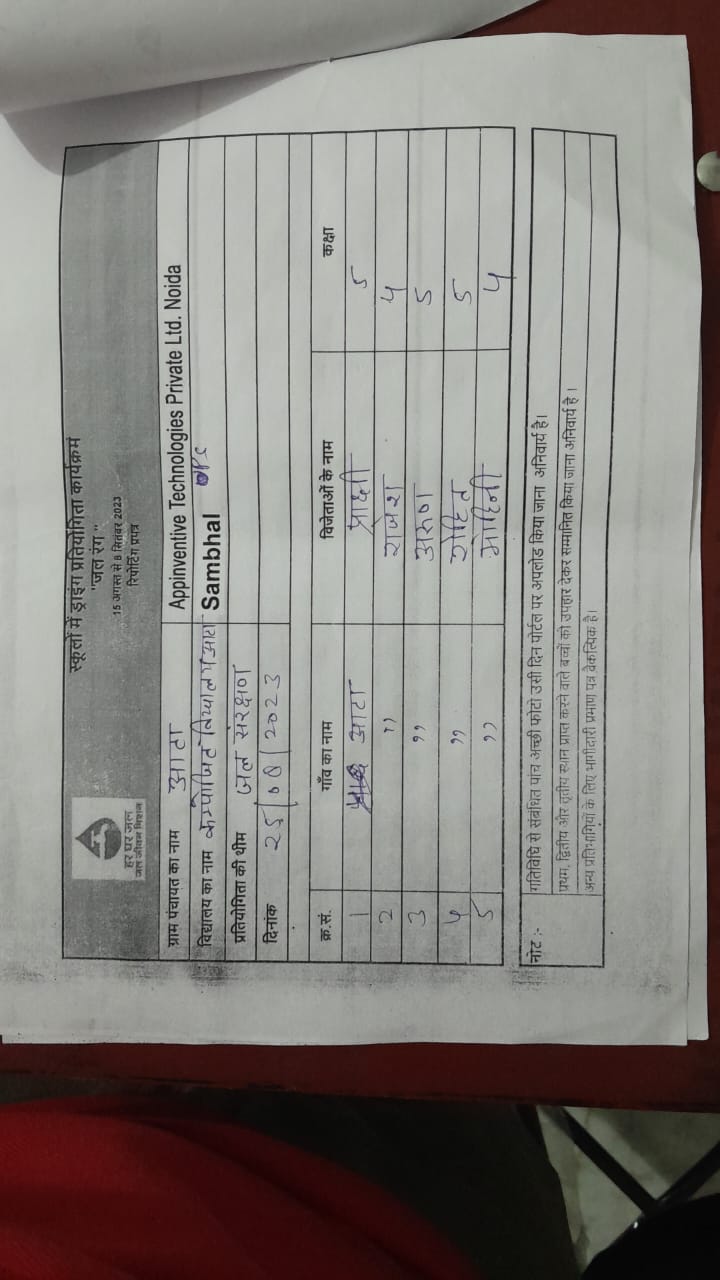 हर घर जल
जल जीवन मिशन
स्कूलों में ड्राइंग प्रतियोगिता कार्यक्रम
"जल रंग"
15 अगस्त से 8 सितंबर 2023
रिपोर्टिंग प्रपत्र
ग्राम पंचायत का नाम आटा Appinventive Technologies Private Ltd. Noida
विद्यालय का नाम कम्पोजिट विद्यालय आटा Sambhal
प्रतियोगिता की थीम जल संरक्षण
दिनांक 25/08/2023
क्र.सं. गाँव का नाम विजेताओं के नाम कक्षा
1 आटा 5
2 " राजेश 4
3 " अरुण 5
4 " रोहित 5
5 " मोहिनी 4
नोट :- गतिविधि से संबंधित पांच अच्छी फोटो उसी दिन पोर्टल पर अपलोड किया जाना अनिवार्य है।
प्रथम, द्वितीय और तृतीय स्थान प्राप्त करने वाले बच्चों को उपहार देकर सम्मानित किया जाना अनिवार्य है।
अन्य प्रतिभागियों के लिए भागीदारी प्रमाण पत्र वैकल्पिक है।